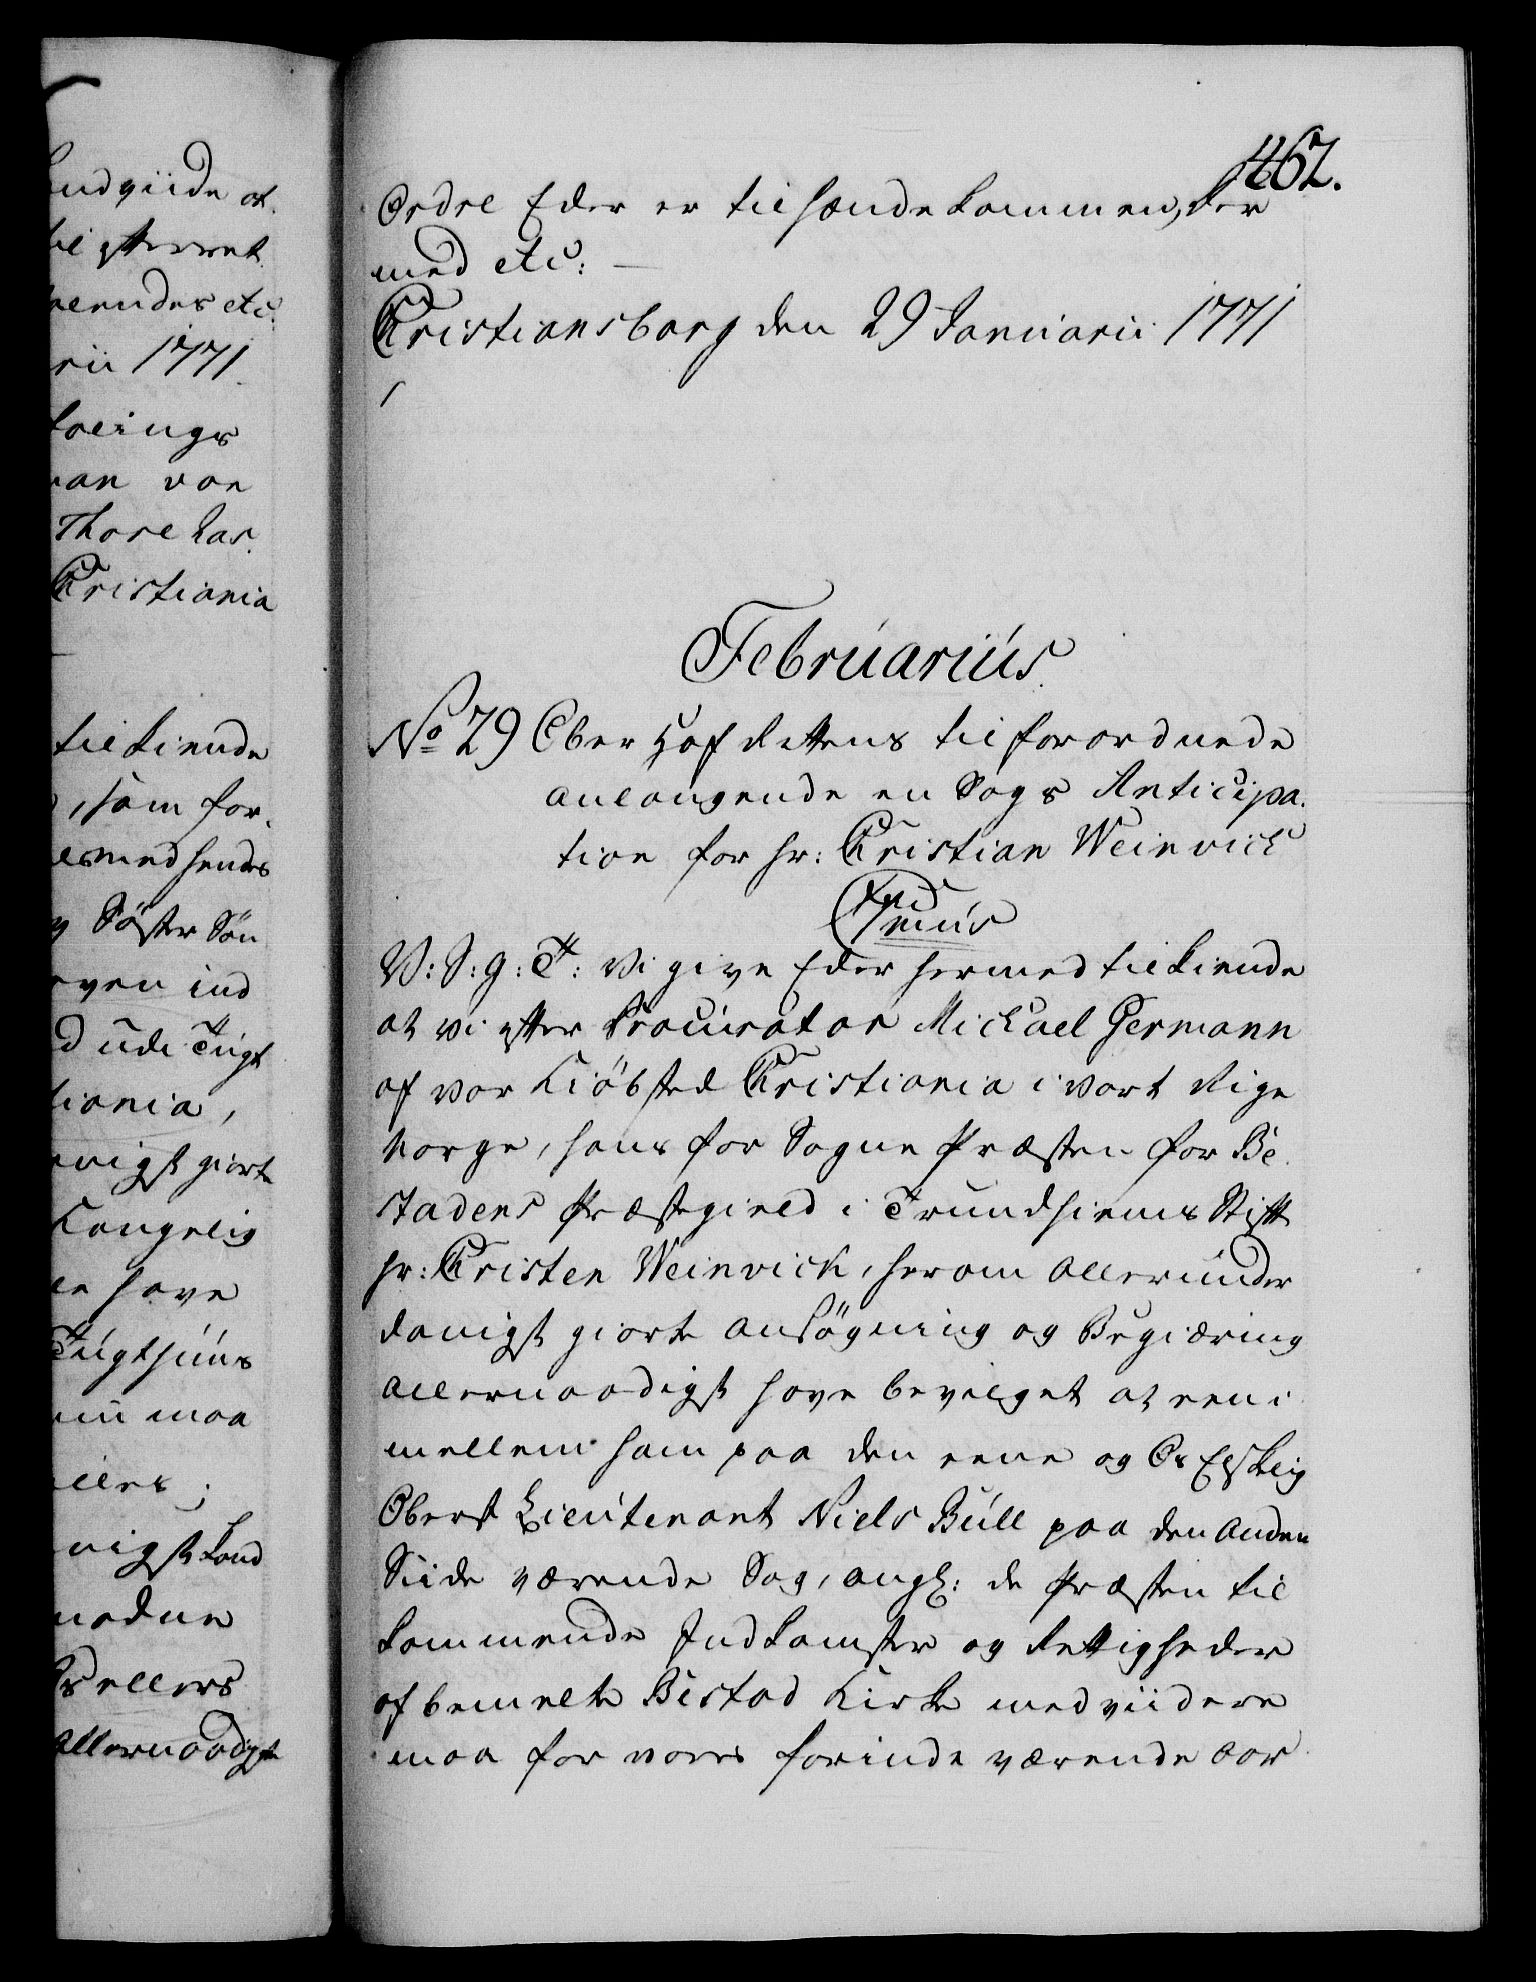 udviide at
til
eendes etc:
rii 1771.
lings
an von
Thore Las.
Christiania
tilkiende
, som for.
es med hendes
Söster Sön
even ind
d udi Tugt
tiania,
nigst giorte
Kongelig
e have
Tugthuus
maa
eller;
nigst land
nedne
Os ellers
Allernaadigste
462.
Ordre Eder er tilhænde kommen, der
med etc: —
Christiansborg den 29 Januarii 1771
Februarius.
No 29 Ober Hof Rettens tilforordnede
anlangende en Sags Anticipa.
tion for Hr: Christian Weinvich
V: S: G: T: Vi give Eder hermed tilkiende
at vi efter Procurator Michael Germann
af vor Kiöbsted Christiania i vort Rige
Norge, hans for Sogne Præsten for Be
stadens Præstegield i Trundhiems Stift
Hr: Christen Weinvick, herom allerunder
danigst giorte Ansögning og Begiæring
allernaadigst have bevilget at een i
mellem ham paa den eene og Os Elskelig
Oberst Lieutenant Niels Bull paa den anden
Siide værende Sag, angl: de Præsten til
kommende Indkomster og Rettigheder
af bemelte Bestad Kirke med viidere
maa for vores forinde værende aar